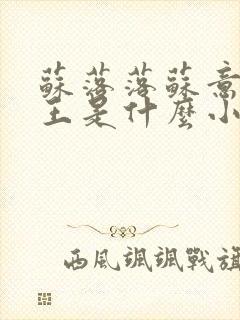 蘇落落蘇意
王是什麼小
西風颯颯戰旗